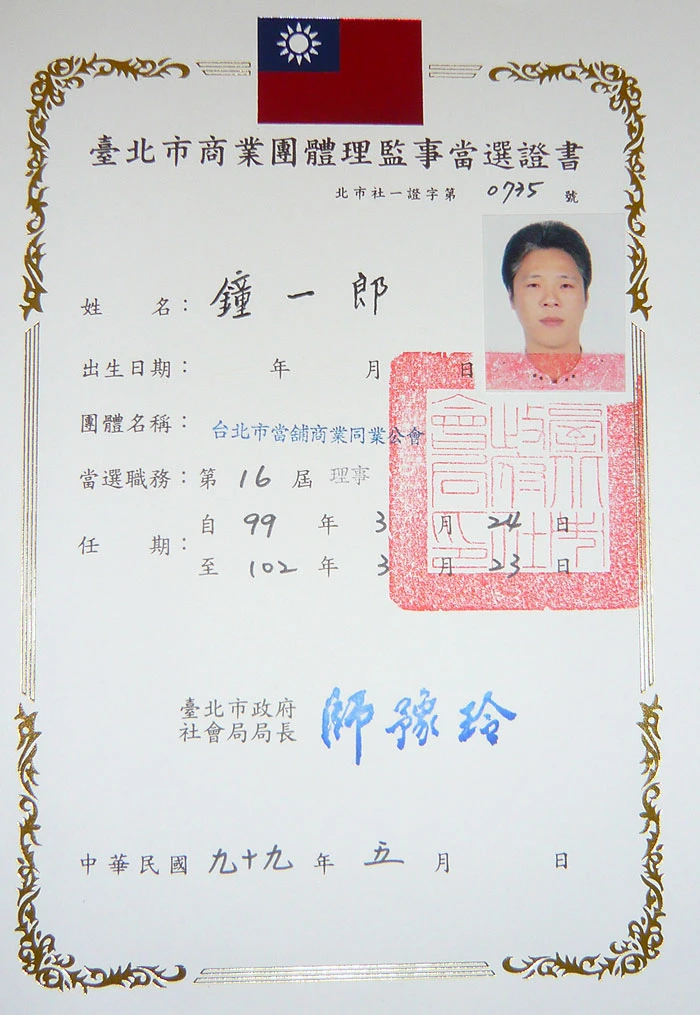 臺北市商業團體理監事當選證書
北市社一證字第 0735 號
姓 名： 鐘一郎
出生日期： 年 月 日
團體名稱： 台北市當舖商業同業公會
當選職務：第 16 屆 理事
任 期：自 99 年 3 月 24 日
至 102 年 3 月 23 日
臺北市政府
社會局局長 師豫玲
中華民國 九十九 年 五 月 日